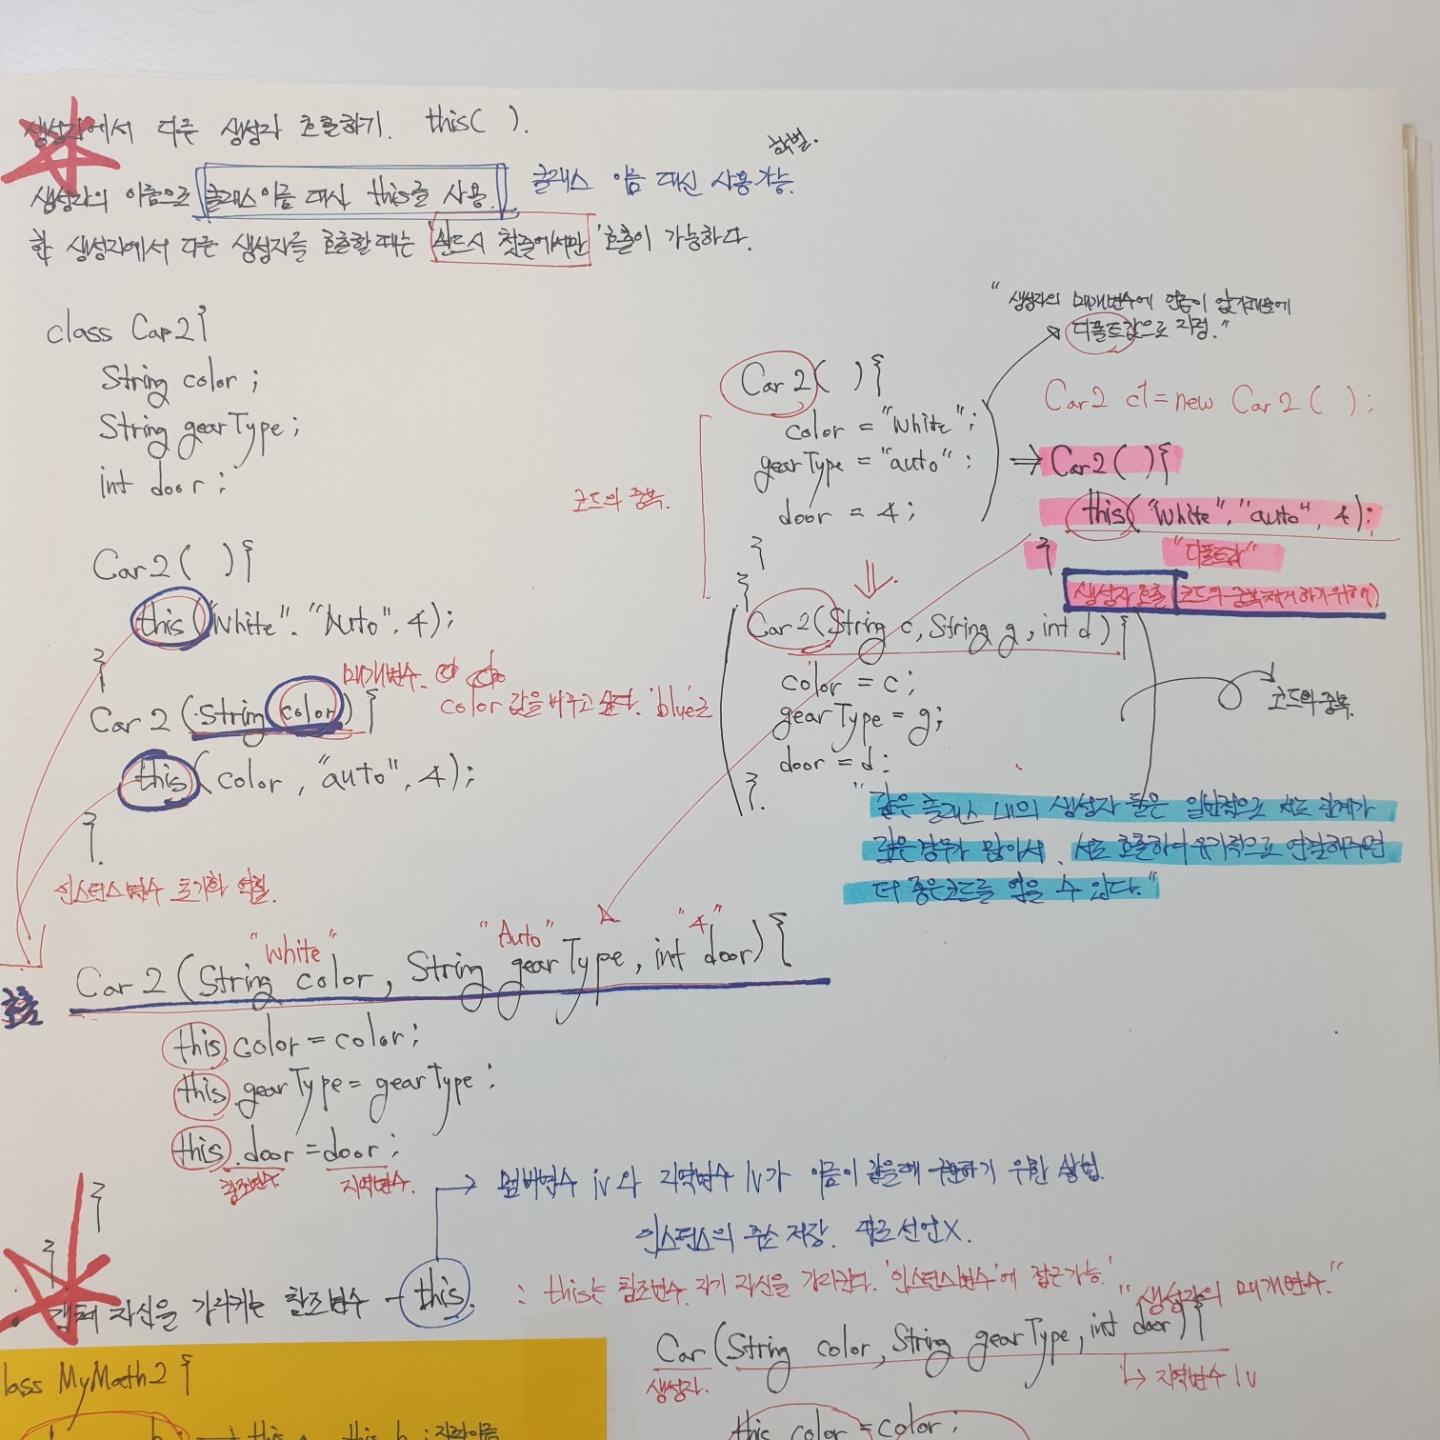 생성자에서 다른 생성자 호출하기. this( ).
생성자의 이름으로 클래스이름 대신 this를 사용. 클래스 이름 대신 사용가능.
한 생성자에서 다른 생성자를 호출할 때는 '반드시 첫줄에서만' 호출이 가능하다.
class Car2{
String color ;
String gearType ;
int door ;
Car2( ){
this("White", "Auto", 4);
}
매개변수.
color 값을 바꾸고 싶다. 'blue'로
Car2 (String color) {
this(color, "auto", 4);
}
인스턴스변수 초기화 역할.
"생성자의 매개변수에
디폴트값으로 지정."
Car2( ){
color = "White";
gearType = "auto" ;
door = 4;
}
}
코드의 중복.
Car2(String c, String g, int d){
color = c;
gearType = g;
door = d;
}.
Car2 c1 = new Car2( );
⇒ Car2( ){
this("White", "auto", 4);
} "디폴트값"
생성자 호출 (코드의 중복제거하기위해)
코드의 중복.
"같은 클래스 내의 생성자 들은 일반적으로 서로 관계가
깊은 경우가 많아서, 서로 호출하여 유기적으로 연결해주면
더 좋은코드를 얻을 수 있다."
"White" "Auto" "4"
호출 Car2 (String color, String gearType, int door){
this.color = color;
this.gearType = gearType ;
this.door = door;
참조변수. 지역변수.
}
}
→ 멤버변수 iv와 지역변수 lv가 이름이 같을때 구분하기 위한 방법.
인스턴스의 주소 저장. 따로 선언X.
• 객체 자신을 가리키는 참조변수 - this. : this는 참조변수. 자기 자신을 가리킨다. '인스턴스변수'에 접근가능.
"생성자의 매개변수."
Car (String color, String gearType, int door){
생성자. ↳ 지역변수 lv
this color = color ;
lass MyMath2 {